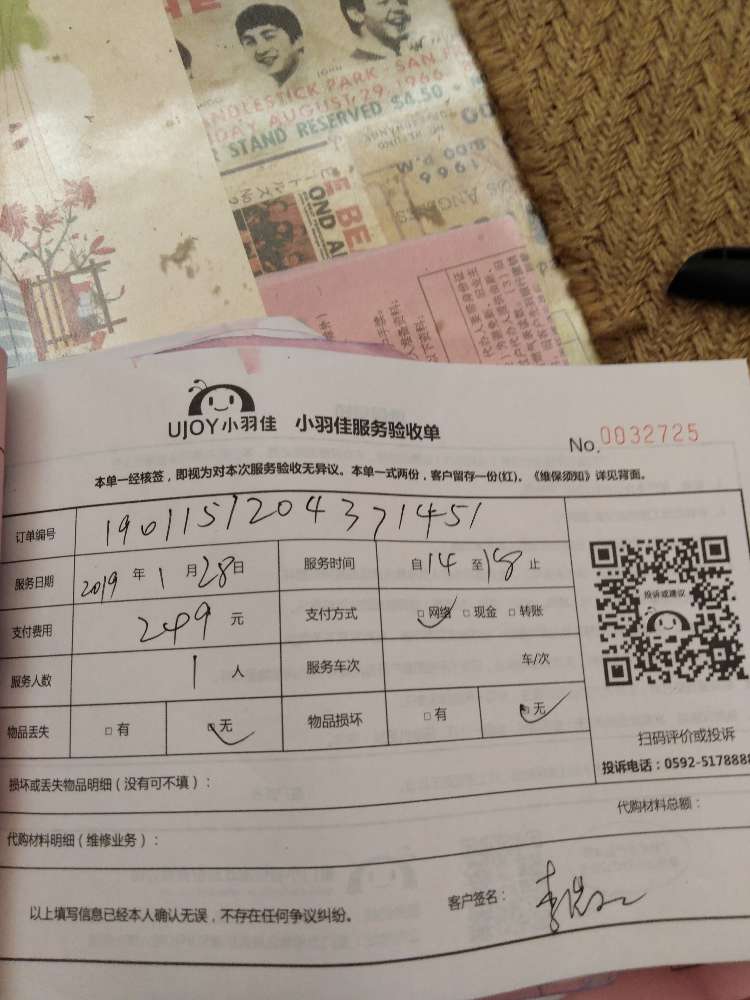 CANDLESTICK PARK · SAN FR
AUGUST 29, 1966
STAND RESERVED $4.50
8:00 P.M
1966
UJOY小羽佳 小羽佳服务验收单
No. 0032725
本单一经核签，即视为对本次服务验收无异议。本单一式两份，客户留存一份(红)。《维保须知》详见背面。
订单编号 19011512043 71451
服务日期 2019 年 1 月 28 日 服务时间 自 14 至 18 止
支付费用 249 元 支付方式 □网络 □现金 □转账
服务人数 1 人 服务车次 车/次
物品丢失 □有 □无 物品损坏 □有 □无
投诉或建议
扫码评价或投诉
投诉电话：0592-5178888
损坏或丢失物品明细（没有可不填）：
代购材料总额：
代购材料明细（维修业务）：
以上填写信息已经本人确认无误，不存在任何争议纠纷。
客户签名：